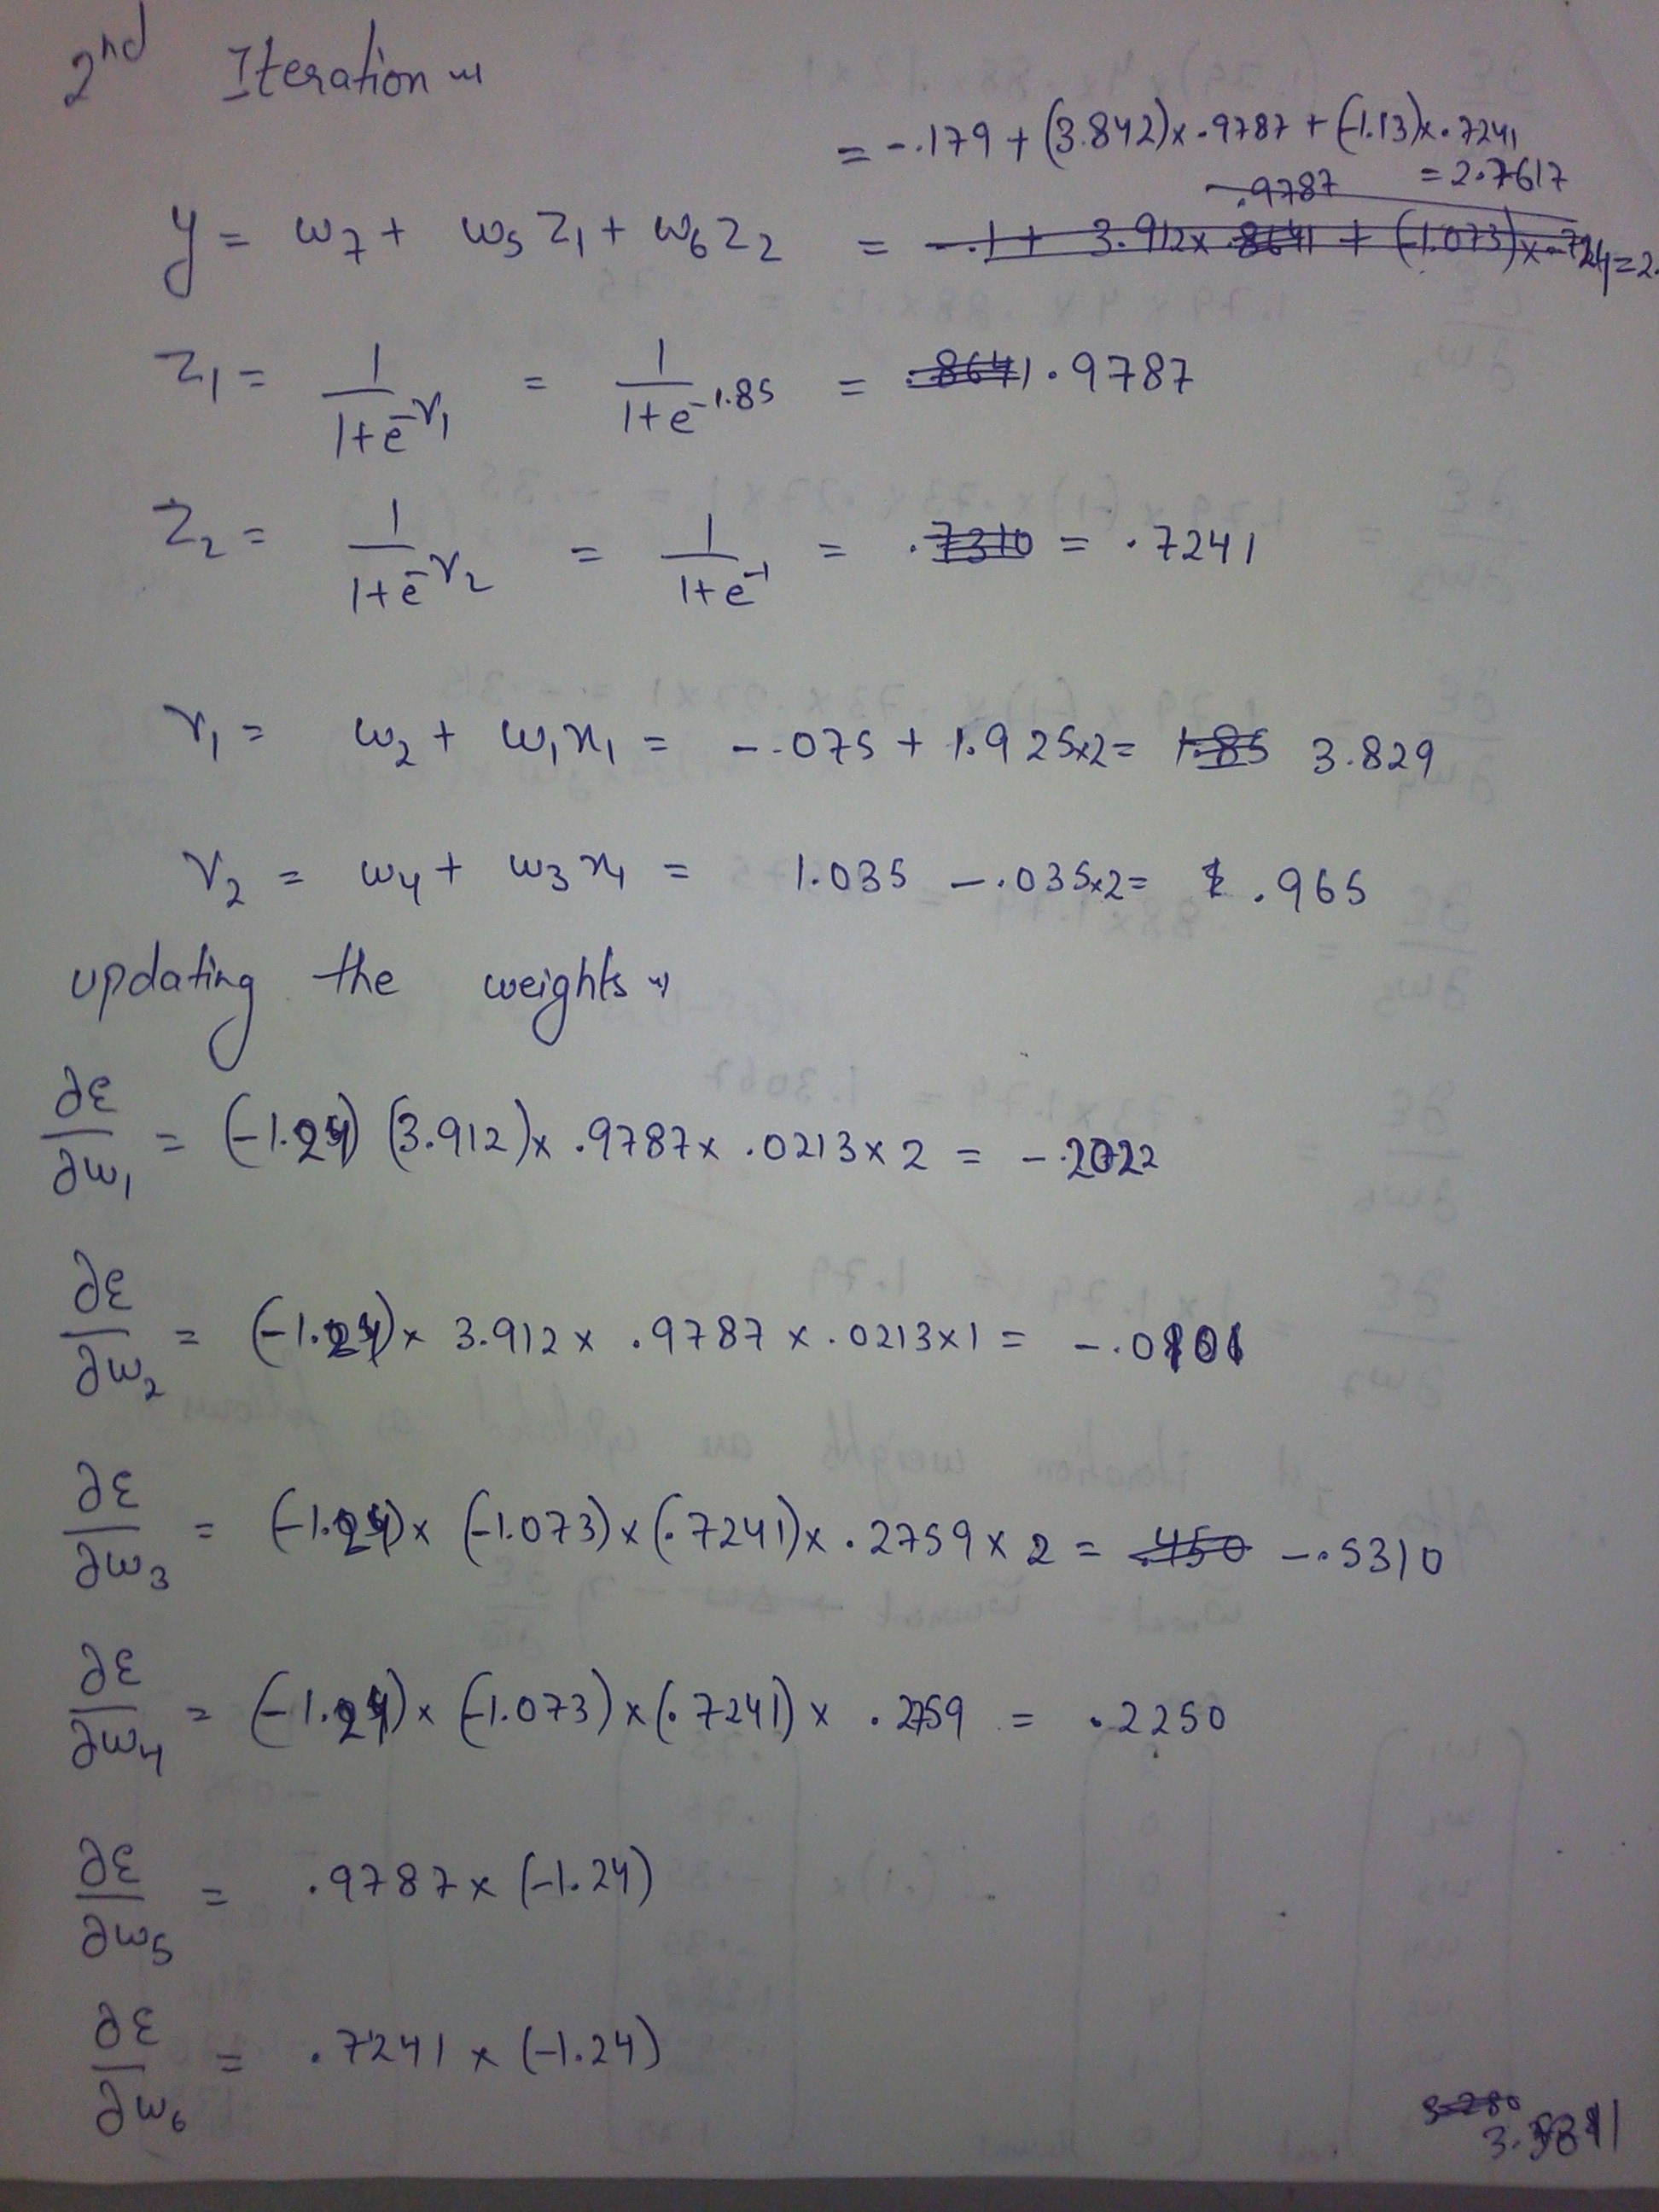 2nd Iteration
= -.179 + (3.842)x.9787 + (-1.13)x.7241
= 2.7617
.9787
y = w7 + w5 z1 + w6 z2 = -.1 + 3.912x .8641 + (-1.073)x.724=2.
z1 = 1/(1+e^-r1) = 1/(1+e^-1.85) = .8641 .9787
z2 = 1/(1+e^-r2) = 1/(1+e^-1) = .7310 = .7241
r1 = w2 + w1x1 = -.075 + 1.925x2 = 1.85 3.829
r2 = w4 + w3x1 = 1.035 -.035x2 = .965
updating the weights
∂ε/∂w1 = (-1.24) (3.912)x .9787x .0213x2 = -.2022
∂ε/∂w2 = (-1.24)x 3.912x .9787x.0213x1 = -.0101
∂ε/∂w3 = (-1.24)x (-1.073)x(.7241)x.2759x2 = .450 -.5310
∂ε/∂w4 = (-1.24)x (-1.073)x(.7241)x .2759 = .2250
∂ε/∂w5 = .9787x(-1.24)
∂ε/∂w6 = .7241x(-1.24)
3.280